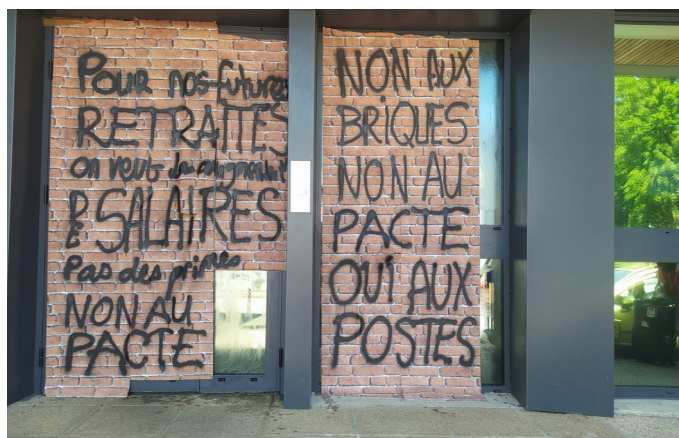 Pour nos futures
RETRAITES
on veut
DE SALAIRES
Pas des primes
NON AU
PACTE
NON AUX
BRIQUES
NON AU
PACTE
OUI AUX
POSTES